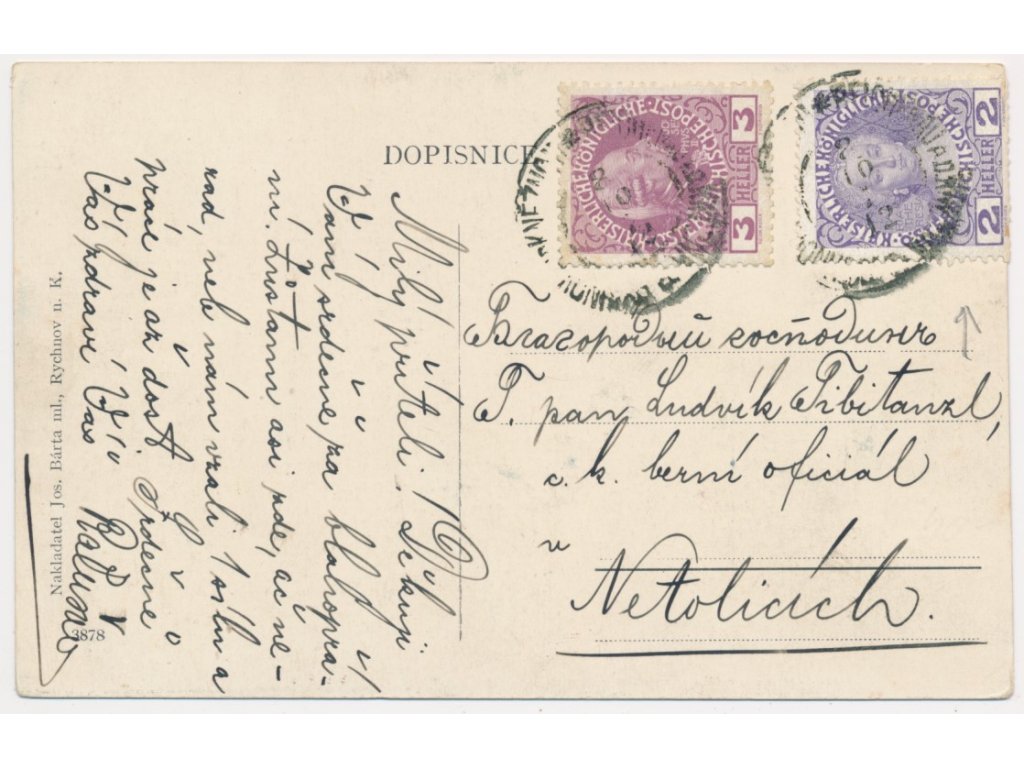 DOPISNICE
Milý příteli! Děkuji
Vám srdečně za blahopřá-
ní. Zůstanu asi zde, ač ne-
rad, neb nám vzali 1 sílu a
práce je až dost. Srdečně
Vás zdraví Váš
Nakladatel Jos. Bárta ml., Rychnov n. K.
3878
KAISERLICHE KÖNIGLICHE
3 HELLER 3
KAISERLICHE KÖNIGLICHE
2 HELLER 2
Благородный господинъ
T. pan Ludvík Tibitanzl,
c. k. berní oficiál
v
Netolicích.